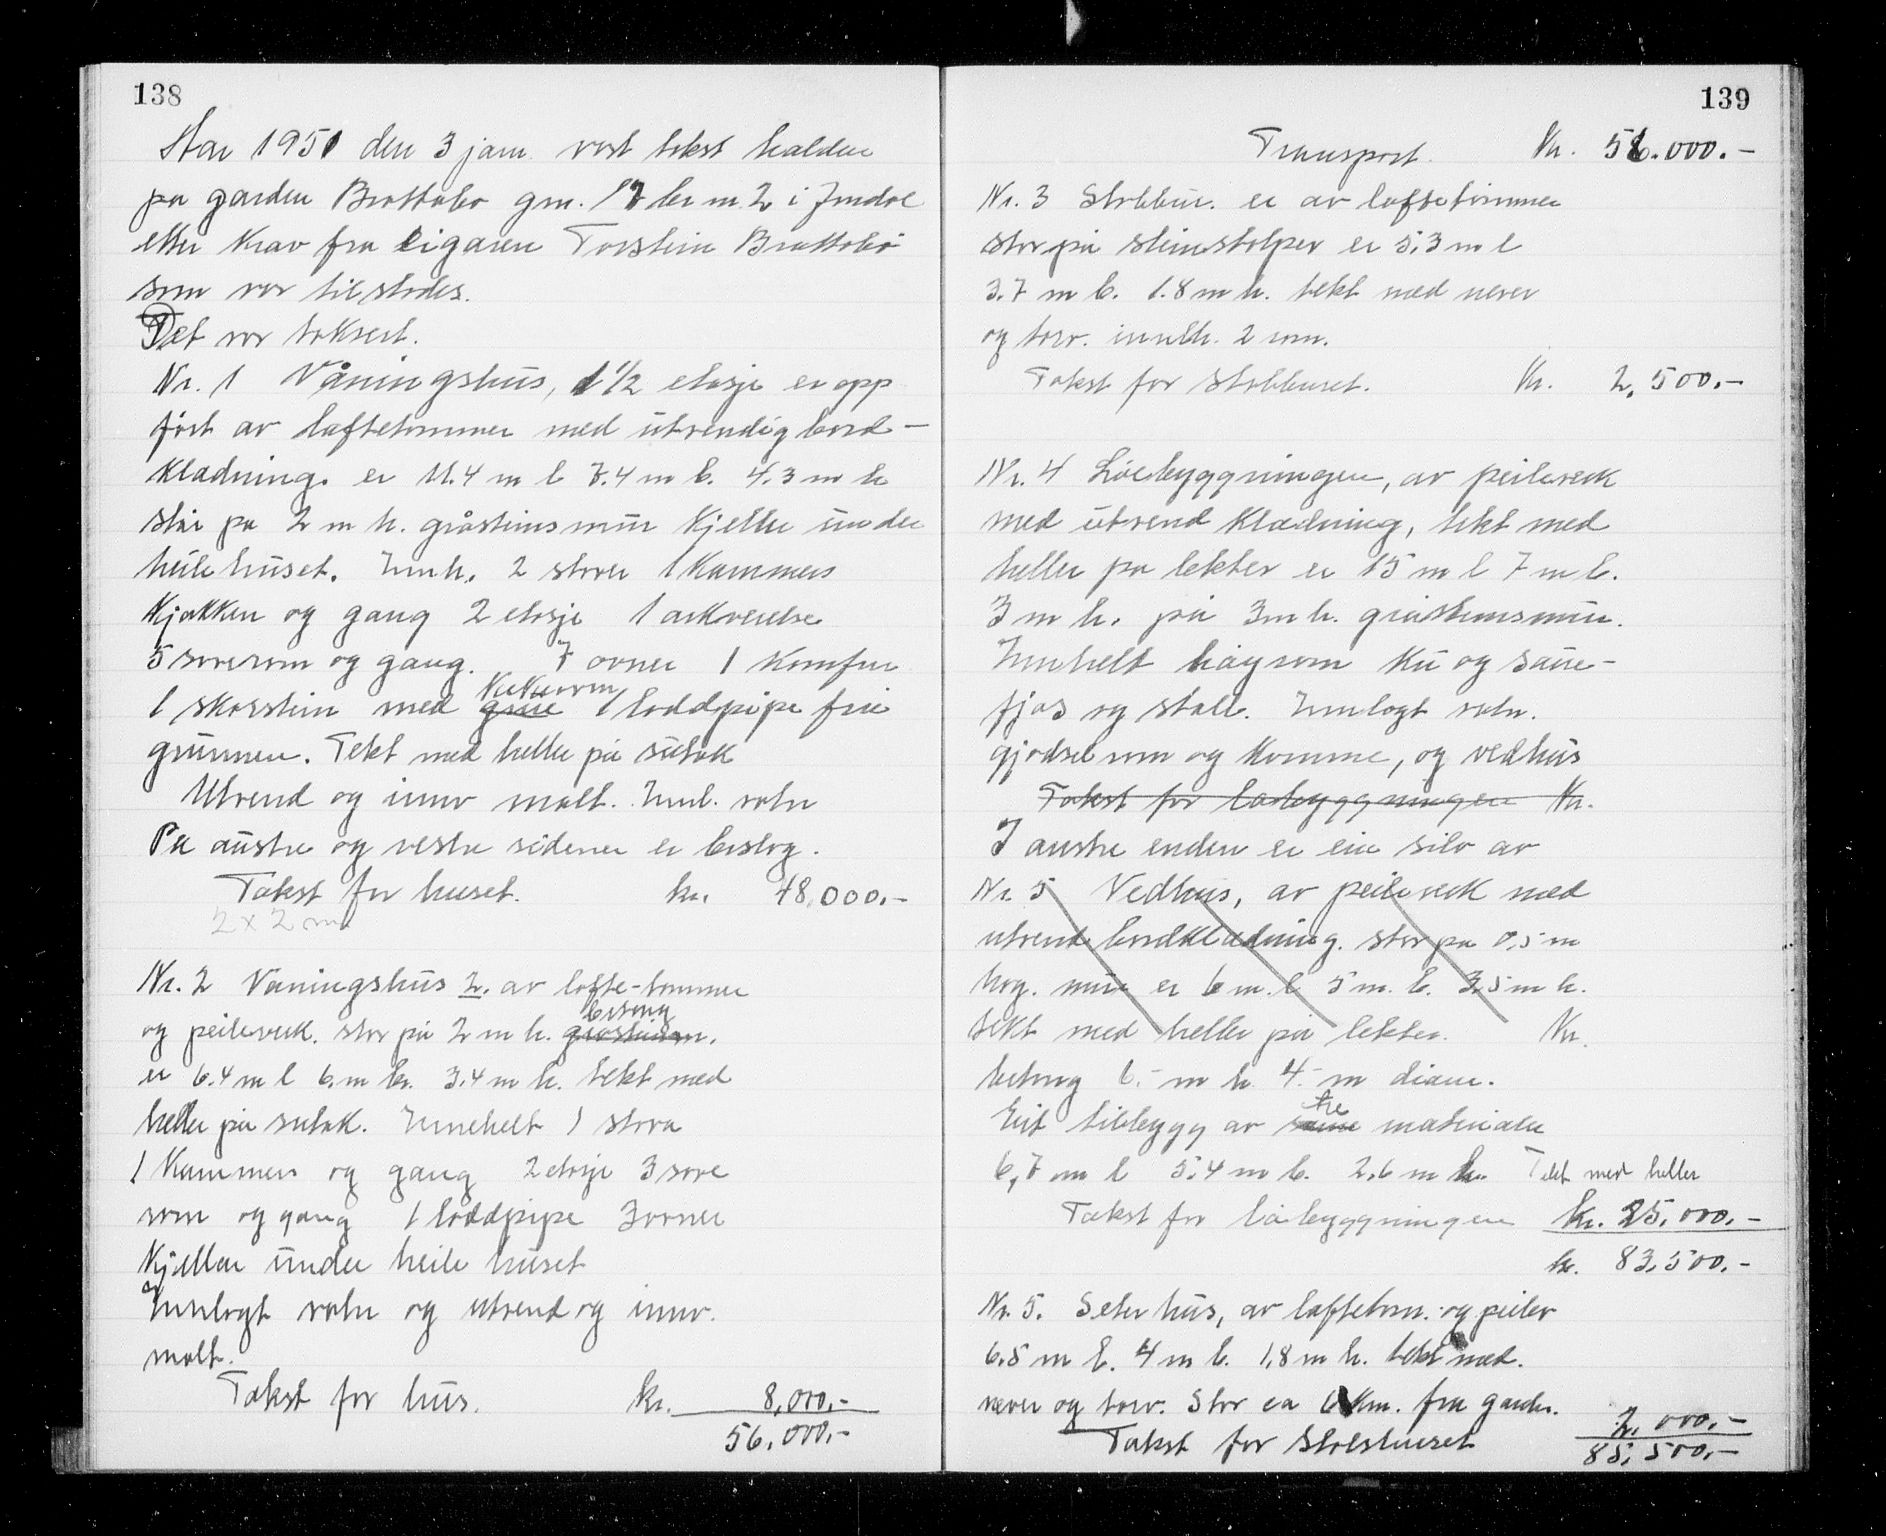 138
Aar 1951 den 3 jan. vart takst halden
på garden Brattabø gnr. 17 br nr 2 i Jondal
etter krav fra eigaren Torstein Brattabø
som var tilstades.
Det var taksert.
Nr. 1 Våningshus, 1 1/2 etasje er opp
ført av laftetømmer med utvendig bord-
kledning. er 11.4 m l 7.4 m b. 4.3 m h
står på 2 m h. gråsteinsmur kjeller under
heile huset. Innh. 2 stover 1 kammers
kjøkken og gang 2 etasje 1 arkverelse
5 soverom og gang. 7 ovner 1 komfur
kukeovn
1 skorstein med grue 1 loddpipe frå
grunnen. Tekt med heller på sutak
Utvend og innv malt. Innl. vatn
På austre og vestre sidene er bislag.
Takst for huset. kr. 48,000.-
2 x 2 m
Nr. 2 Våningshus 2. av lafte-tømmer
betong
og peileverk. står på 2 m h. gråsteinsm.
er 6.4 m l 6. m b. 3.4 m h. tekt med
heller på sutak. Innehelt 1 stova
1 kammers og gang 2 etasje 3 sove
rom og gang 1 loddpipe 3 ovner
Kjellar under heile huset
Innlagt vatn og utvend og innv.
malt.
Takst for hus. kr. 8,000.-
56,000.-
139
Transport. Kr. 56.000.-
Nr. 3 Stabbur. er av laftetømmer
står på steinstolper er 5,3 m l
3.7 m b. 1.8 m h. tekt med never
og torv. inneh. 2 rom.
Takst for stabburet. Kr. 2,500.-
Nr. 4 Løebyggningen, av peileverk
med utvend kledning, tekt med
heller på lekter er 15 m l 7 m b.
3 m h. på 3 m h. gråsteinsmur.
Innhelt høyrom ku og saue-
fjøs og stall. Innlagt vatn.
gjødselrom og komme, og vedhus
Takst for løebyggningen Kr.
I austre enden er ein silo av
Nr. 5 Vedhus, av peileverk med
utvend bordkledning. står på 0,5 m
høg. mur er 6 m. l 5 m. b. 3,5 m h.
tekt med heller på lekter. Kr.
betong 6.- m h. 4.- m diam.
tre
Eit tilbygg av same materiale
6,7 m l 5,4 m b. 2,6 m h. Tekt med heller
Takst for løebyggningen kr. 25,000.-
kr. 83,500.-
Nr. 5. Seterhus, av laftetøm. og peilev
6.5 m l. 4 m b. 1,8 m h. tekt med.
never og torv. Står ca 6 km. fra garden.
2,000.-
Takst for stølshuset 85,500.-